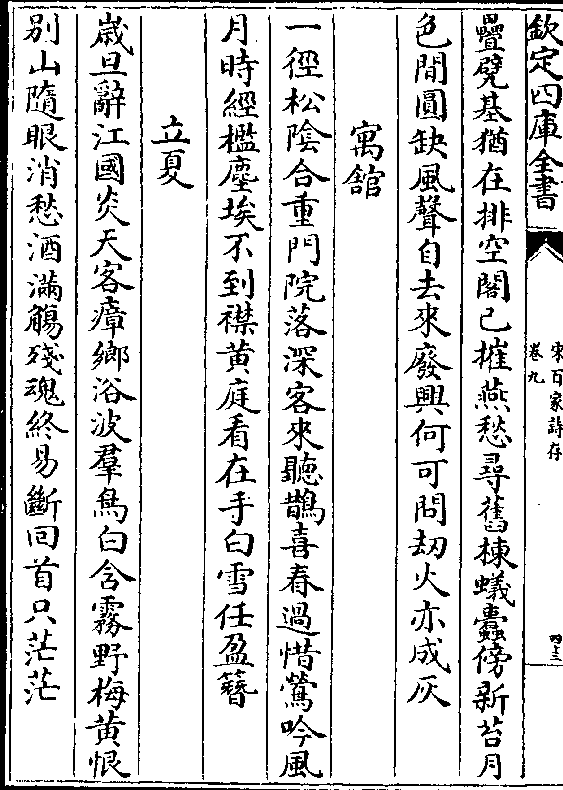 欽定四庫全書
宋百家詩存
卷九
四十三
疊甓基猶在排空閣已摧燕愁尋舊棟蟻蠹傍新苔月
色間圓缺風聲自去來廢興何可問劫火亦成灰
寓舘
一徑松陰合重門院落深客來聽鵲喜春過惜鶯吟風
月時經檻塵埃不到襟黄庭看在手白雪任盈簮
立夏
歳旦辭江國炎天客瘴鄉浴波羣鳥白含霧野梅黄恨
别山隨眼消愁酒滿觴殘魂終易斷回首只茫茫